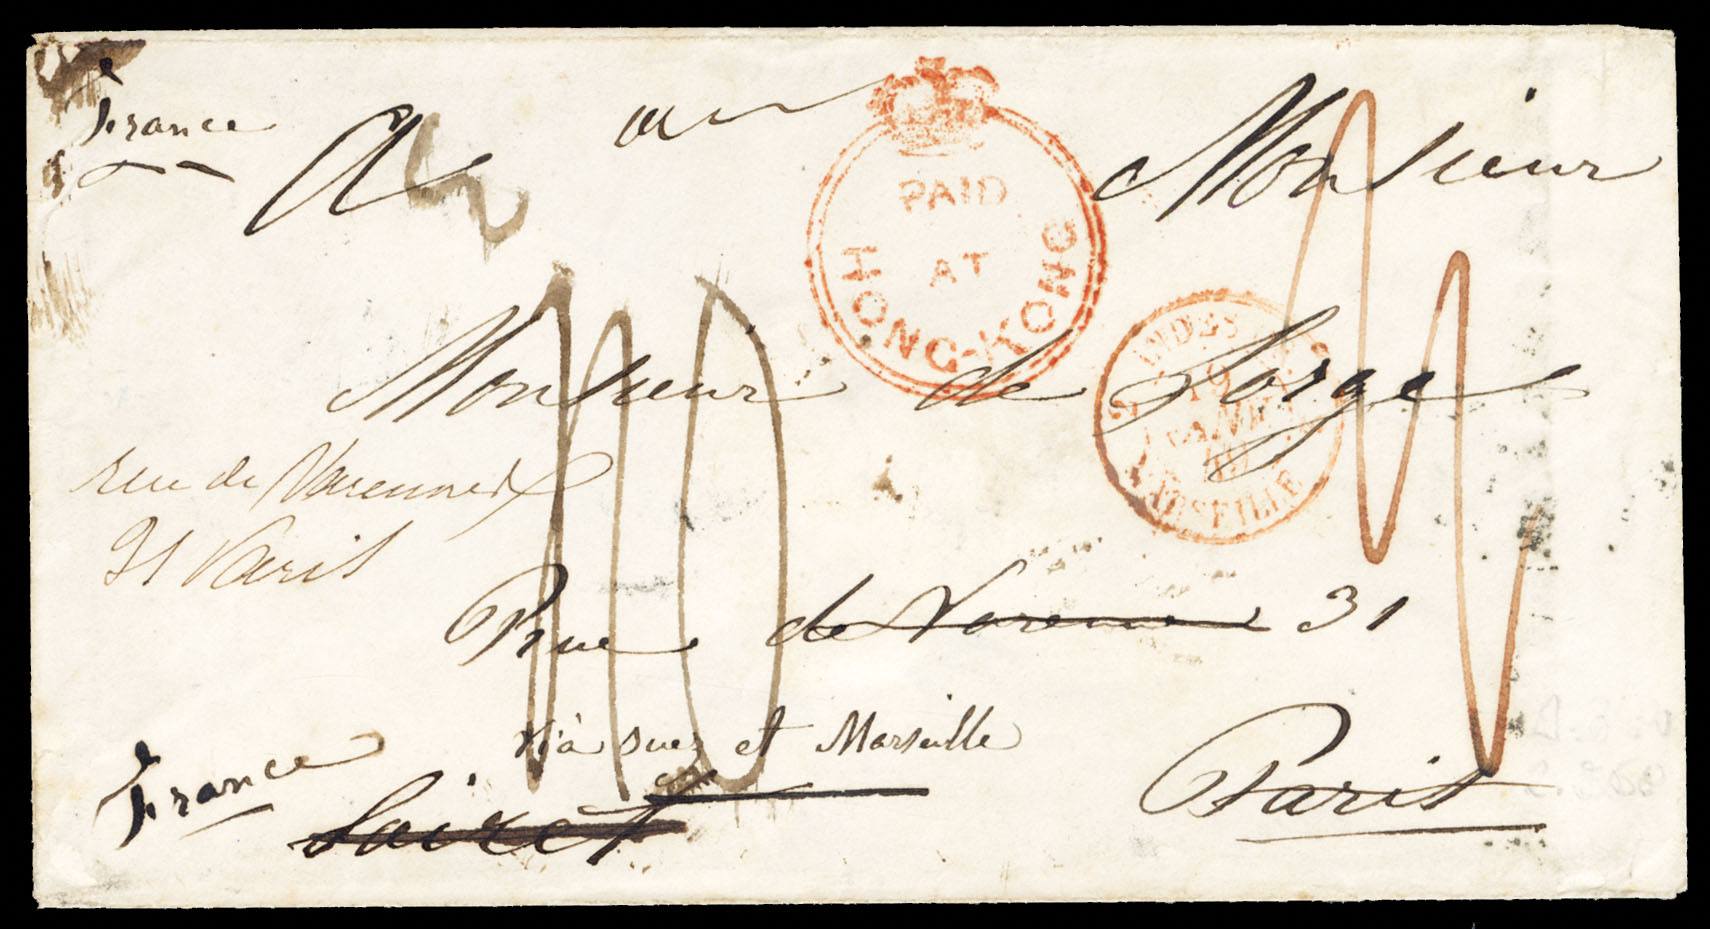 France
A
Monsieur
PAID
AT
HONG-KONG
Monsieur de Sorge
INDES
10
JANV.
MARSEILLE
rue de Varennes
31 Paris
10
Rue de Varenne 31
via suez et Marseille
France
Loiret
Paris